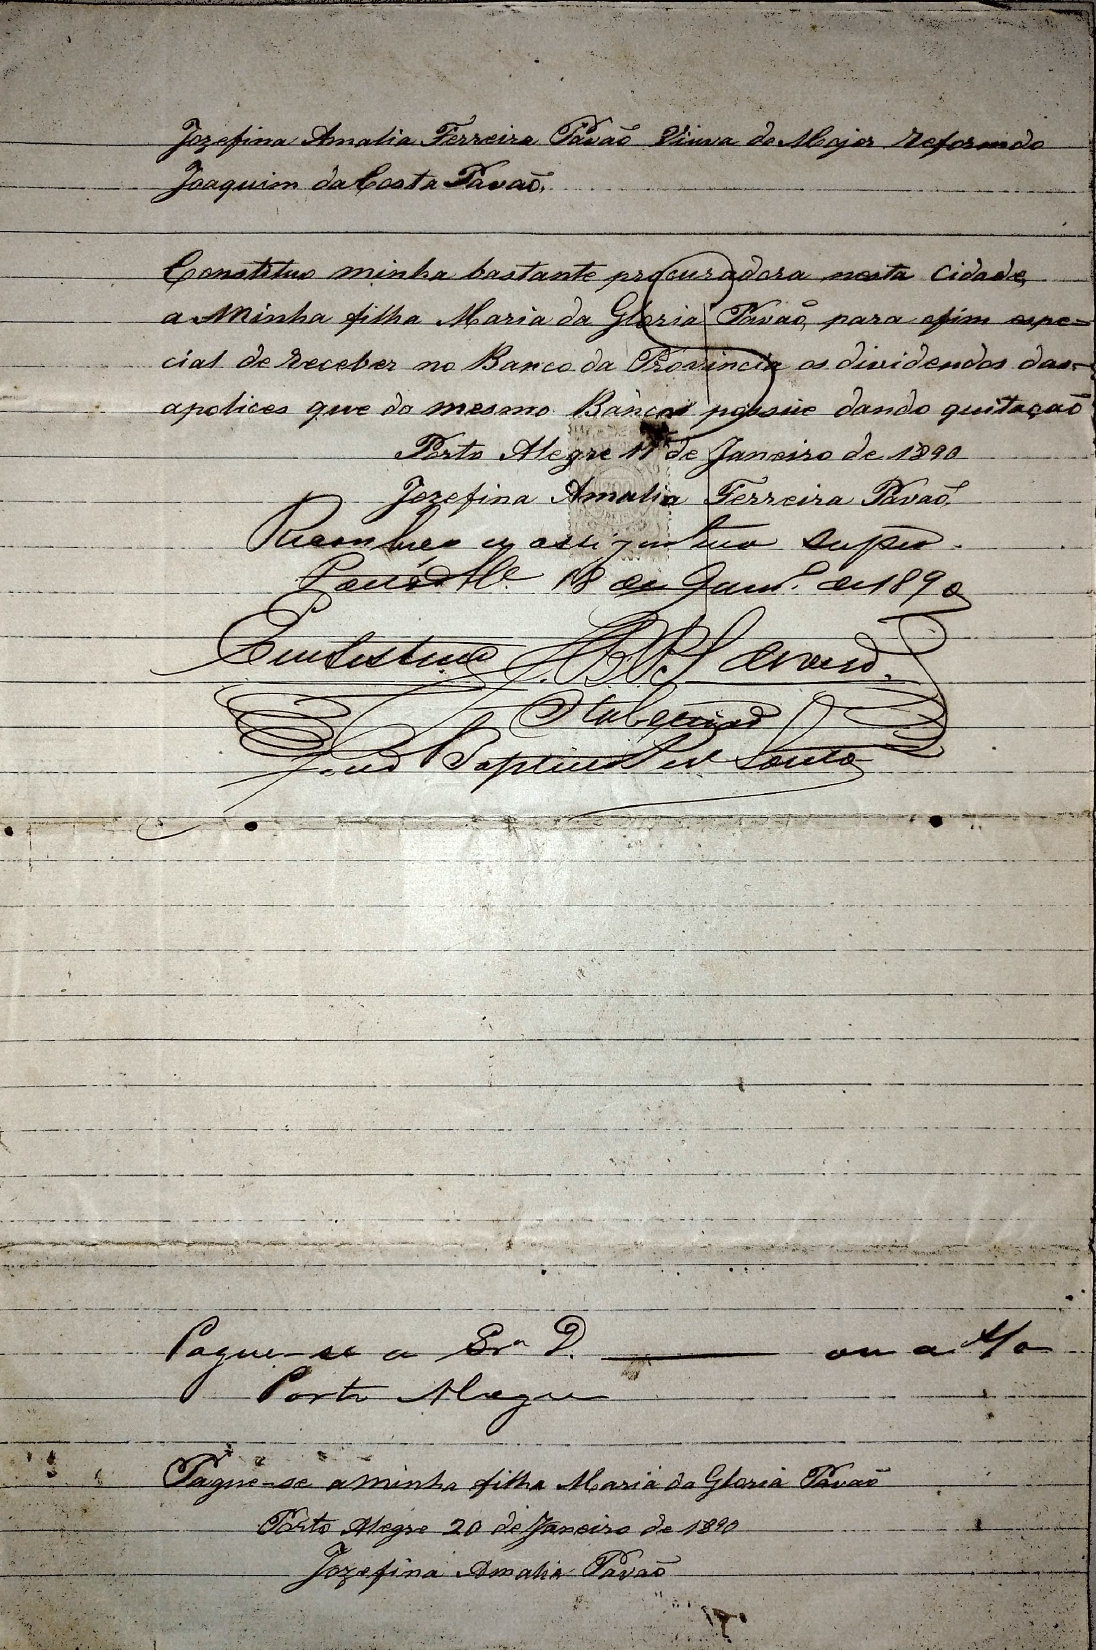 Jozefina Amalia Ferreira Pavaõ Viuva do Major reformado
Joaquim da Costa Pavaõ.
Constituo minha bastante procuradora nesta cidade,
a Minha filha Maria da Gloria Pavaõ, para o fim espe=
cial de receber no Banco da Provincia os dividendos das
apolices que do mesmo Banco possúe dando quitaçaõ
Porto Alegre 11 de Janeiro de 1890
200
Jozefina Amalia Ferreira Pavaõ.
Reconheço a assignatura supra.
18 de Janrº. de 1890
Em test
Tabelliaõ
Baptista
Pague-se a Srª D. ——— ou a
Porto Alegre
Pague-se a minha filha Maria da Gloria Pavaõ
Porto Alegre 20 de Janeiro de 1890
Jozefina Amalia Pavaõ